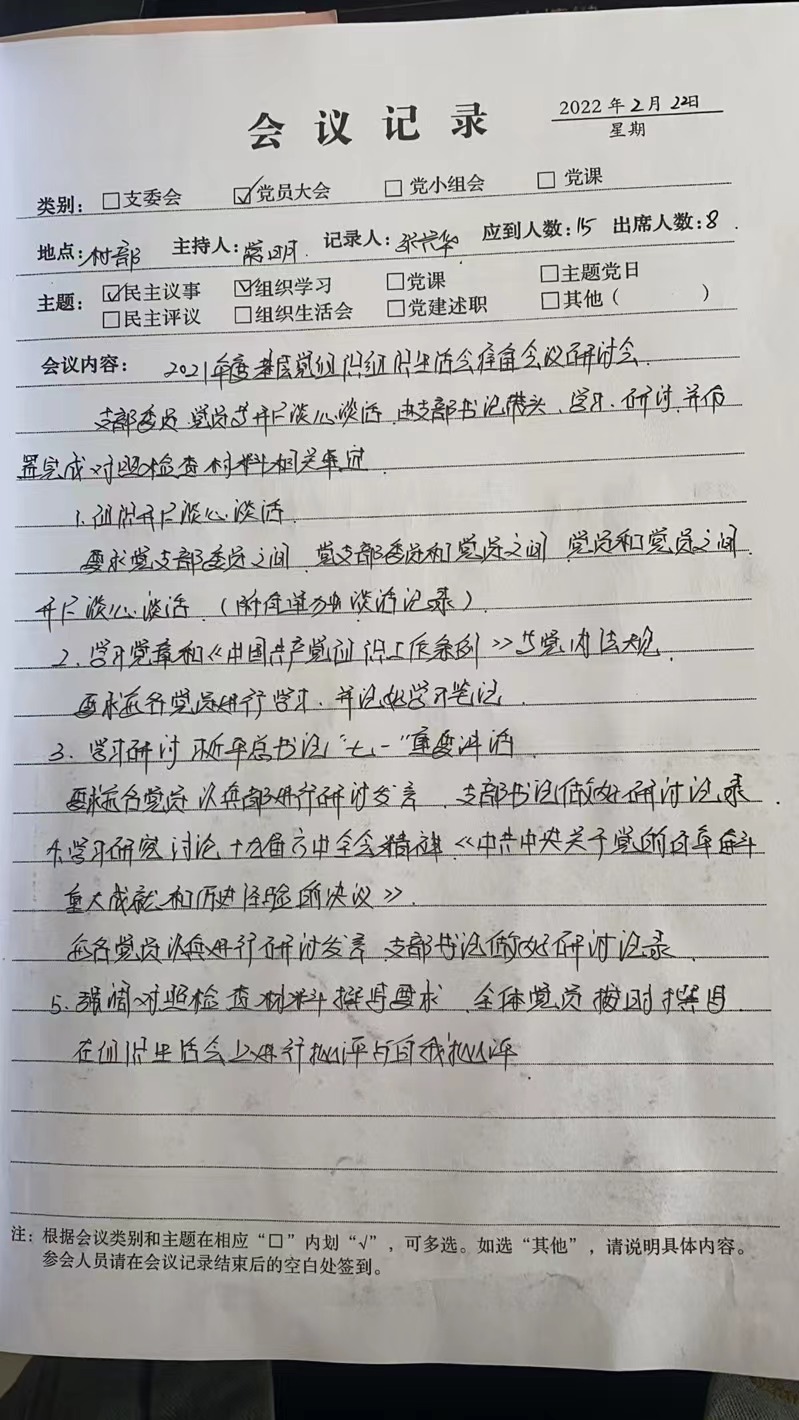 会议记录
2022年2月22日
星期
类别：□支委会 ☑党员大会 □党小组会 □党课
地点：村部 主持人： 明 记录人：张 华 应到人数：15 出席人数：8.
主题：☑民主议事 ☑组织学习 □党课 □主题党日
□民主评议 □组织生活会 □党建述职 □其他（ ）
会议内容： 2021年度基层党组织组织生活会准备会议研讨会.
支部委员、党员等开展谈心谈话,由支部书记带头、学习、研讨,并布
置完成对照检查材料相关事宜.
1.组织开展谈心谈话.
要求党支部委员之间、党支部委员和党员之间、党员和党员之间
开展谈心谈话.( 谈话记录).
2.学习党章和《中国共产党组织工作条例》等党内法规.
要求 各党员进行学习.并记好学习笔记.
3.学习研讨习近平总书记"七一"重要讲话.
要求 各党员 进行研讨发言、支部书记做好研讨记录.
4.学习研究讨论十九届六中全会精神《中共中央关于党的百年奋斗
重大成就和历史经验的决议》.
各党员 进行研讨发言 支部书记做好研讨记录.
5.强调对照检查材料撰写要求、全体党员按时撰写.
在组织生活会上进行批评与自我批评.
注：根据会议类别和主题在相应“□”内划“√”，可多选。如选“其他”，请说明具体内容。
参会人员请在会议记录结束后的空白处签到。